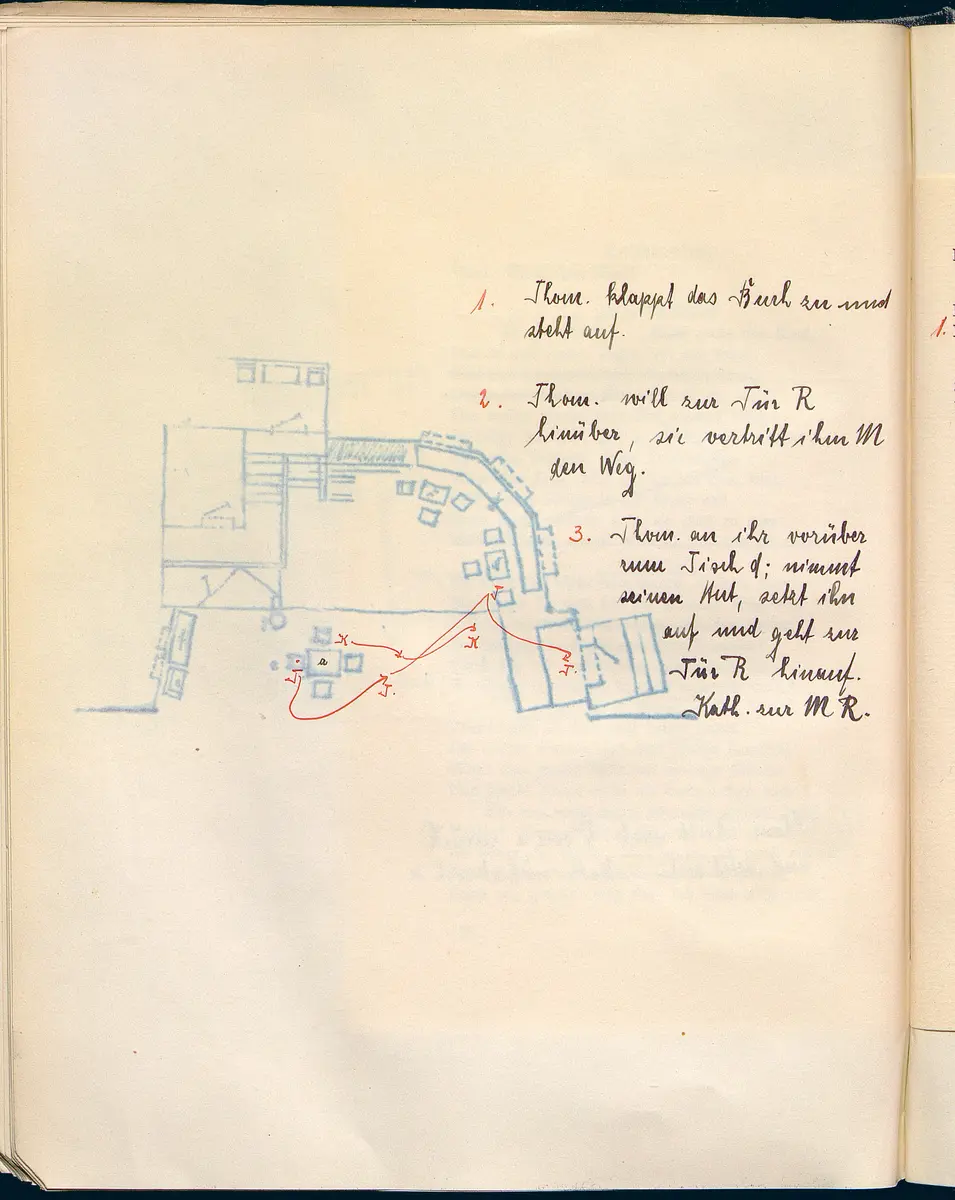 1. Thom. klappt das Buch zu und
steht auf.
2. Thom. will zur Tür R
hinüber, sie vertritt ihm M
den Weg.
3. Thom. an ihr vorüber
zum Tisch d; nimmt
seinen Hut, setzt ihn
auf und geht zur
Tür R hinauf.
Kath. zur M R.
K
a
K
T.
T.
1.